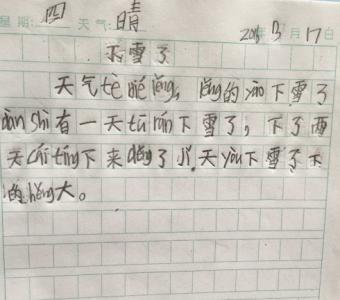 星期:四 天气:晴 2018年3月17日
下雪了
天气tè bié lěng, lěng的yào下雪了
dàn shì有一天tū rán下雪了,下了两
天cái tíng下来děng了几天yòu下雪了下
的hěng大。